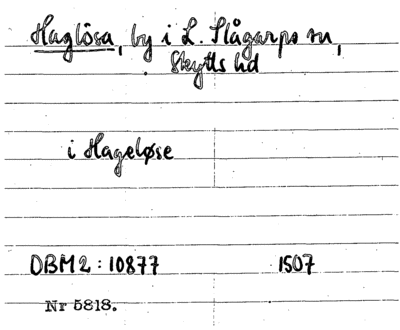 Haglösa, by i L. Slågarps sn,
Skytts hd
i Hageløse
DBM2: 10877 1507
Nr 5818.